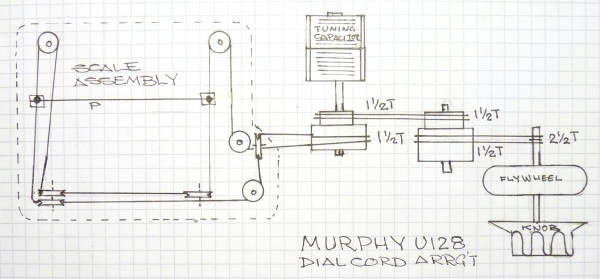 TUNING
CAPACITOR
SCALE
ASSEMBLY
P
1½T
1½T
1½T
1½T
2½T
FLYWHEEL
KNOB
MURPHY U128
DIAL CORD ARRG'T